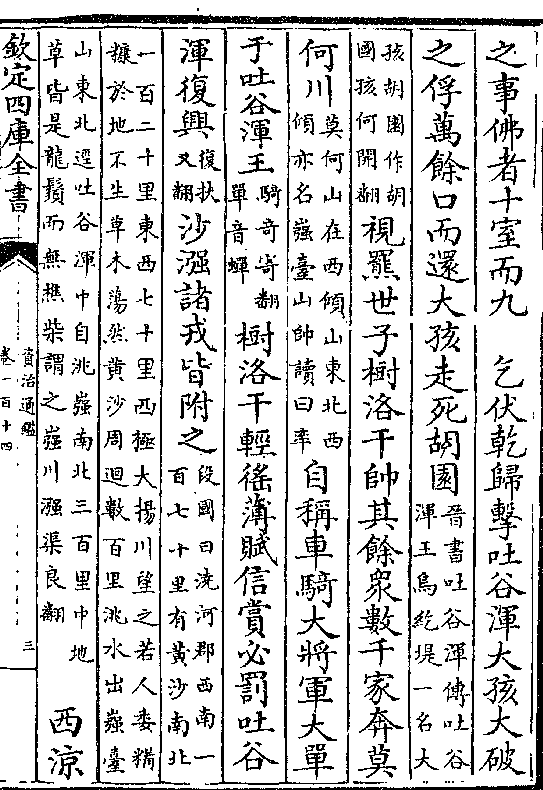 之事佛者十室而九　乞伏乾歸擊吐谷渾大孩大破
之俘萬餘口而還大孩走死胡園
晉書吐谷渾傳吐谷
渾王烏紇堤一名大
孩胡園作胡
國孩何開翻
視羆世子樹洛干帥其餘衆數千家奔莫
何川
莫何山在西傾山東北西
傾亦名嵹臺山帥讀曰率
自稱車騎大將軍大單
于吐谷渾王
騎奇寄翻
單音蟬
樹洛干輕徭薄賦信賞必罰吐谷
渾復興
復扶
又翻
沙漒諸戎皆附之
段國曰澆河郡西南一
百七十里有黃沙南北
一百二十里東西七十里西極大揚川望之若人委糒
糠於地不生草木蕩然黃沙周迴數百里洮水出嵹臺
山東北逕吐谷渾中自洮嵹南北三百里中地
草皆是龍鬚而無樵柴謂之嵹川漒渠良翻
西涼
欽定四庫全書
資治通鑑
卷一百十四
三